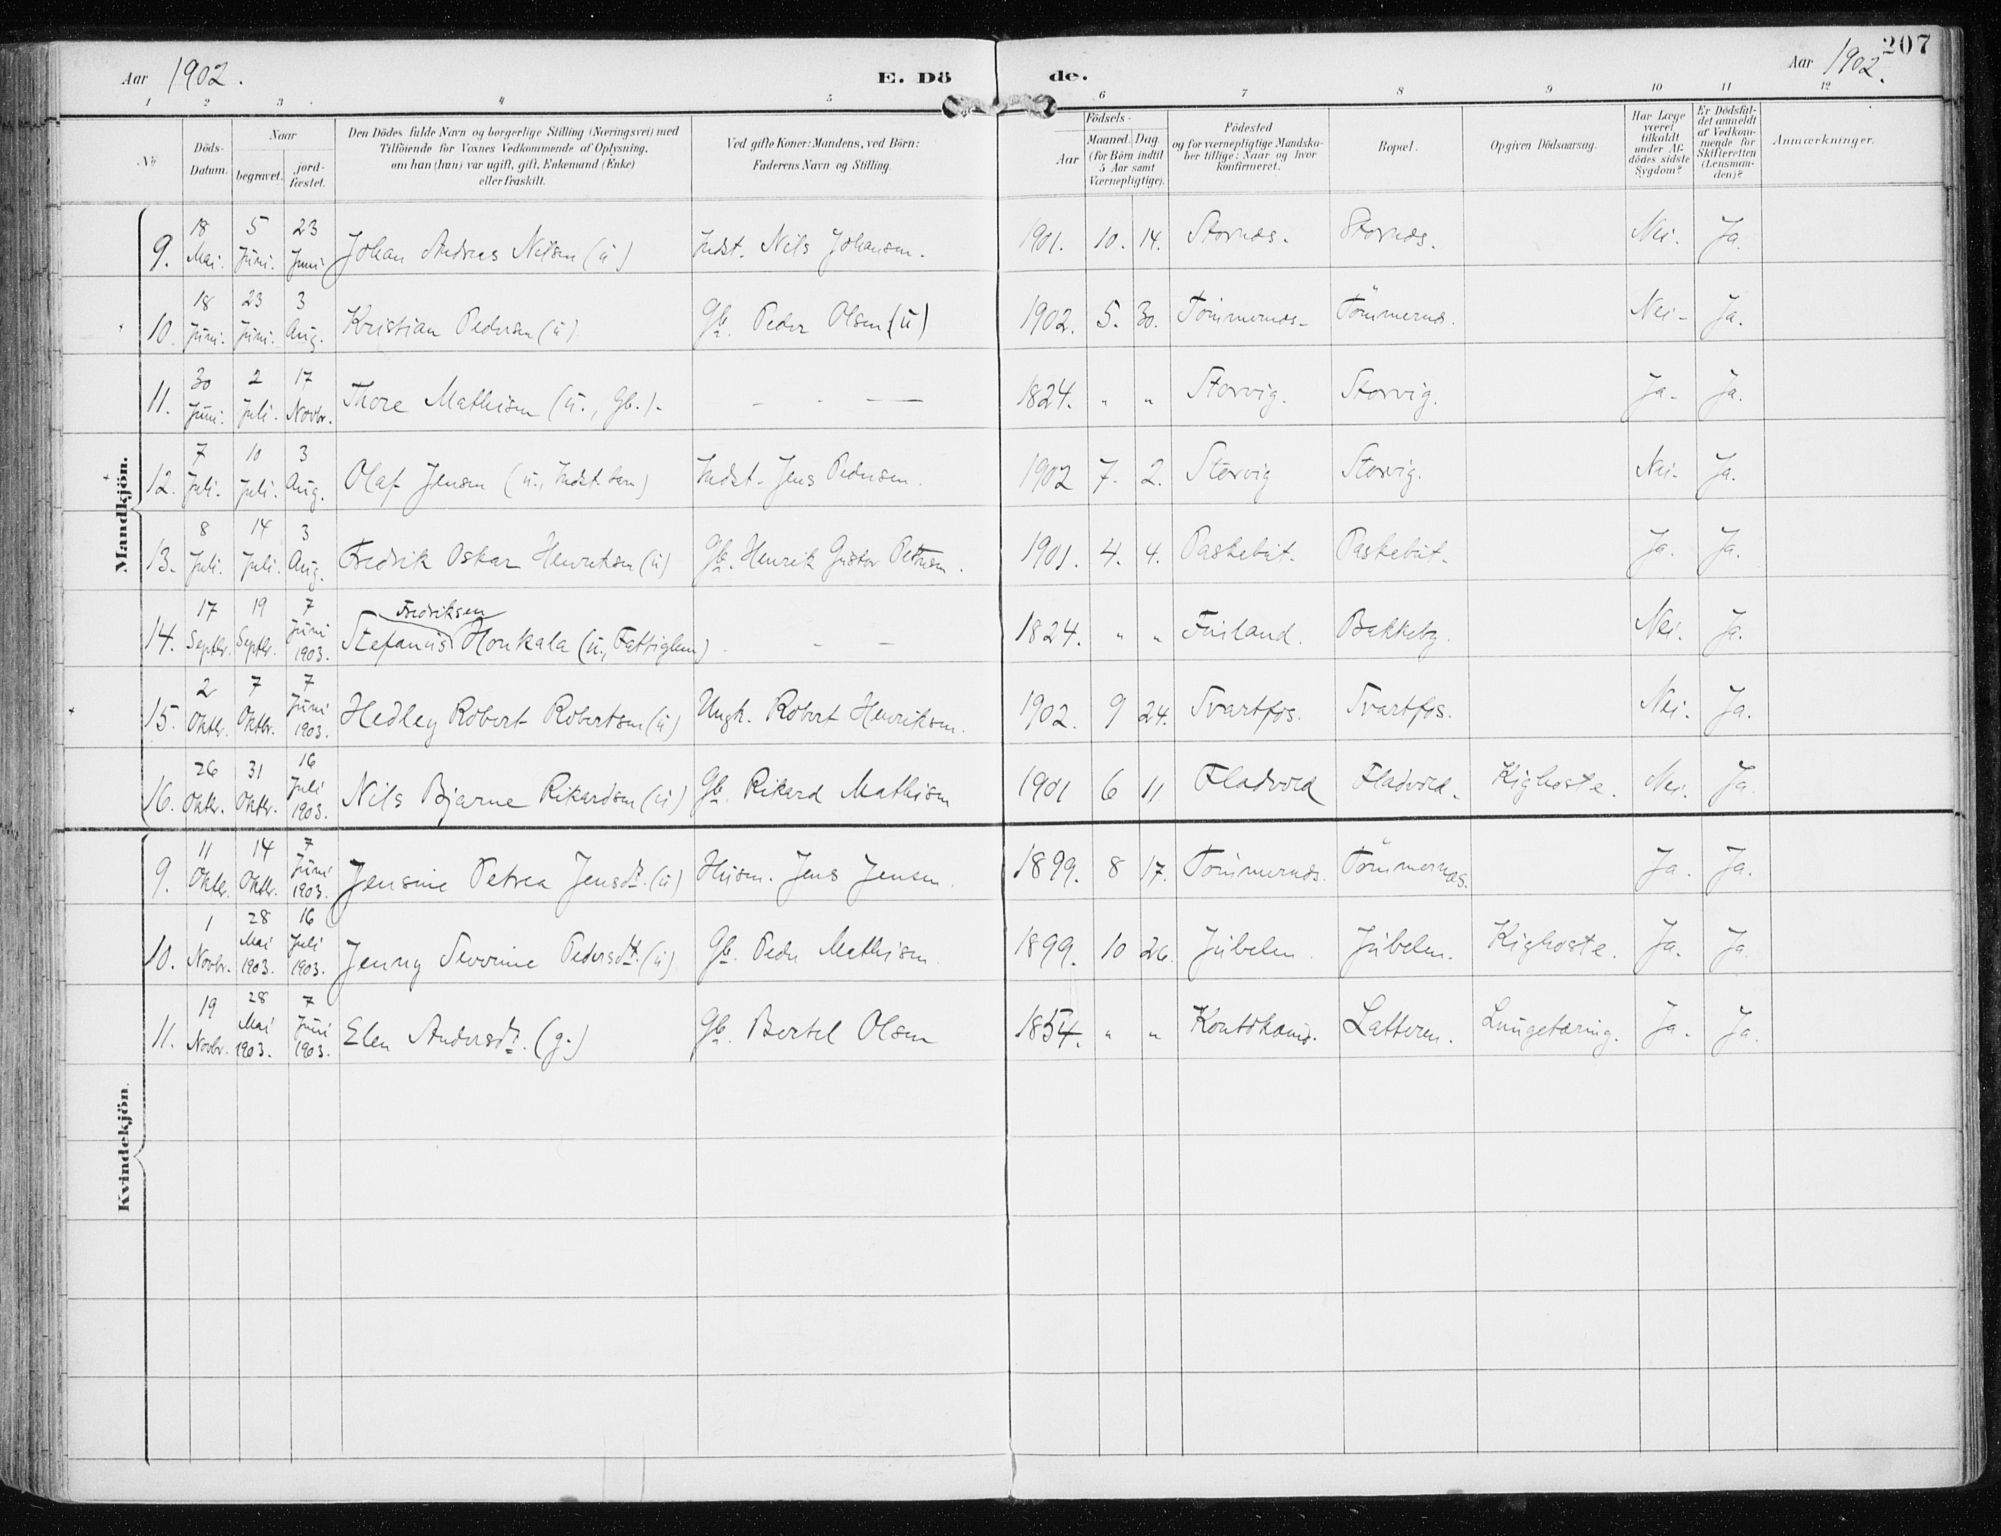 207
Aar 1902. E. Dö de. Aar 1902.
1 2 3 4 5 6 7 8 9 10 11 12
No
Döds-Datum.
Naar
begravet.
jord-fæstet.
Den Dödes fulde Navn og borgerlige Stilling (Næringsvei) med
Tilföiende for Voxnes Vedkommende af Oplysning,
om han (hun) var ugift, gift, Enkemand (Enke)
eller fraskilt.
Ved gifte Koner: Mandens, ved Börn:
Faderens Navn og Stilling.
Födsels-
Aar
Maaned.
Dag.
(for Börn indtil
5 Aar samt
Værnepligtige).
Födested
og for værnepligtige Mandska-
ber tillige: Naar og hvor
konfirmeret.
Bopæl.
Opgiven Dödsaarsag.
Har Læge
været
tilkaldt
under Af-
dödes sidste
Sygdom?
Er Dödsfal-
det anmeldt
af Vedkom-
mende for
Skifteretten
(Lensman-
den)?
Anmærkninger.
Mandkjön.
9. 18 Mai. 5 Juni. 23 Juni Johan Andreas Nilsen (u) Indst. Nils Johansen. 1901. 10. 14. Stornæs. Stornæs. Nei. Ja.
10. 18 Juni. 23 Juni. 3 Aug. Kristian Pedersen (u) Gb. Peder Olsen (u) 1902. 5. 30. Tömmernæs Tömmernæs. Nei Ja.
11. 30 Juni. 2 Juli. 17 Novbr. Thore Mathisen (u., Gb.). - - — 1824. " " Storvig. Storvig. Ja. Ja.
12. 7 Juli. 10 Juli. 3 Aug. Olaf Jensen (u., Indst. søn) Indst. Jens Pedersen. 1902 7. 2. Storvig Storvig. Nei. Ja.
13. 8 Juli. 14 Juli. 3 Aug. Fredrik Oskar Henriksen (u) Gb. Henrik Gustav Pettersen. 1901. 4. 4. Paskebut. Paskebut. Ja. Ja.
Fredriksen
14. 17 Septbr. 19 Septbr. 7 Juni 1903. Stefanus Honkala (u., Fattiglem). - — 1824. " " Finland. Bakkeby. Nei. Ja.
15. 2 Oktbr. 7 Oktbr. 7 Juni 1903. Hedley Robert Robertsen (u) Ungk. Robert Henriksen. 1902. 9 24. Svartfos. Svartfos. Nei. Ja.
16. 26 Oktbr. 31 Oktbr. 16 Juli 1903. Nils Bjarne Rikardsen (u) Gb. Rikard Mathisen 1901 6 11 Fladvold Fladvold. Kighoste. Nei. Ja.
Kvindekjön.
9. 11 Oktbr. 14 Oktbr. 7 Juni 1903. Jensine Petrea Jensdt. (u) Husm. Jens Jensen. 1899. 8 17. Tömmernæs. Tömmernæs. Ja. Ja.
10. 1 Novbr. 28 Mai 1903. 16 Juli 1903. Jenny Severine Pedersdt. (u) Gb. Peder Mathisen. 1899. 10 26. Jubelen. Jubelen. Kighoste. Ja. Ja.
11. 19 Novbr. 28 Mai 1903. 7 Juni 1903. Elen Andersdt. (g.) Gb. Bertel Olsen 1854. " " Koutokeino. Latteren. Lungetæring. Ja. Ja.